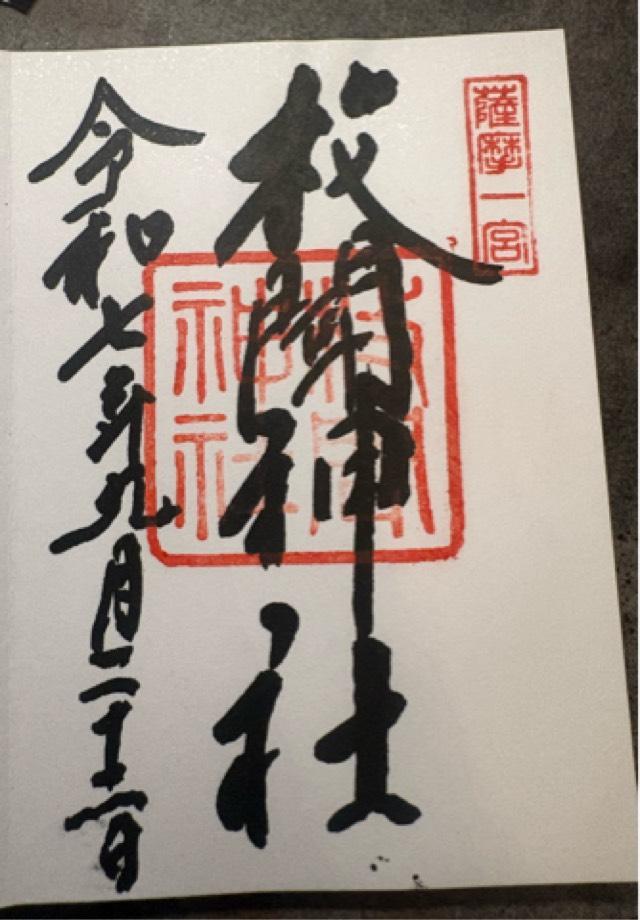 薩摩一宮
枚聞神社
枚聞
神社
令和七年九月二十六日